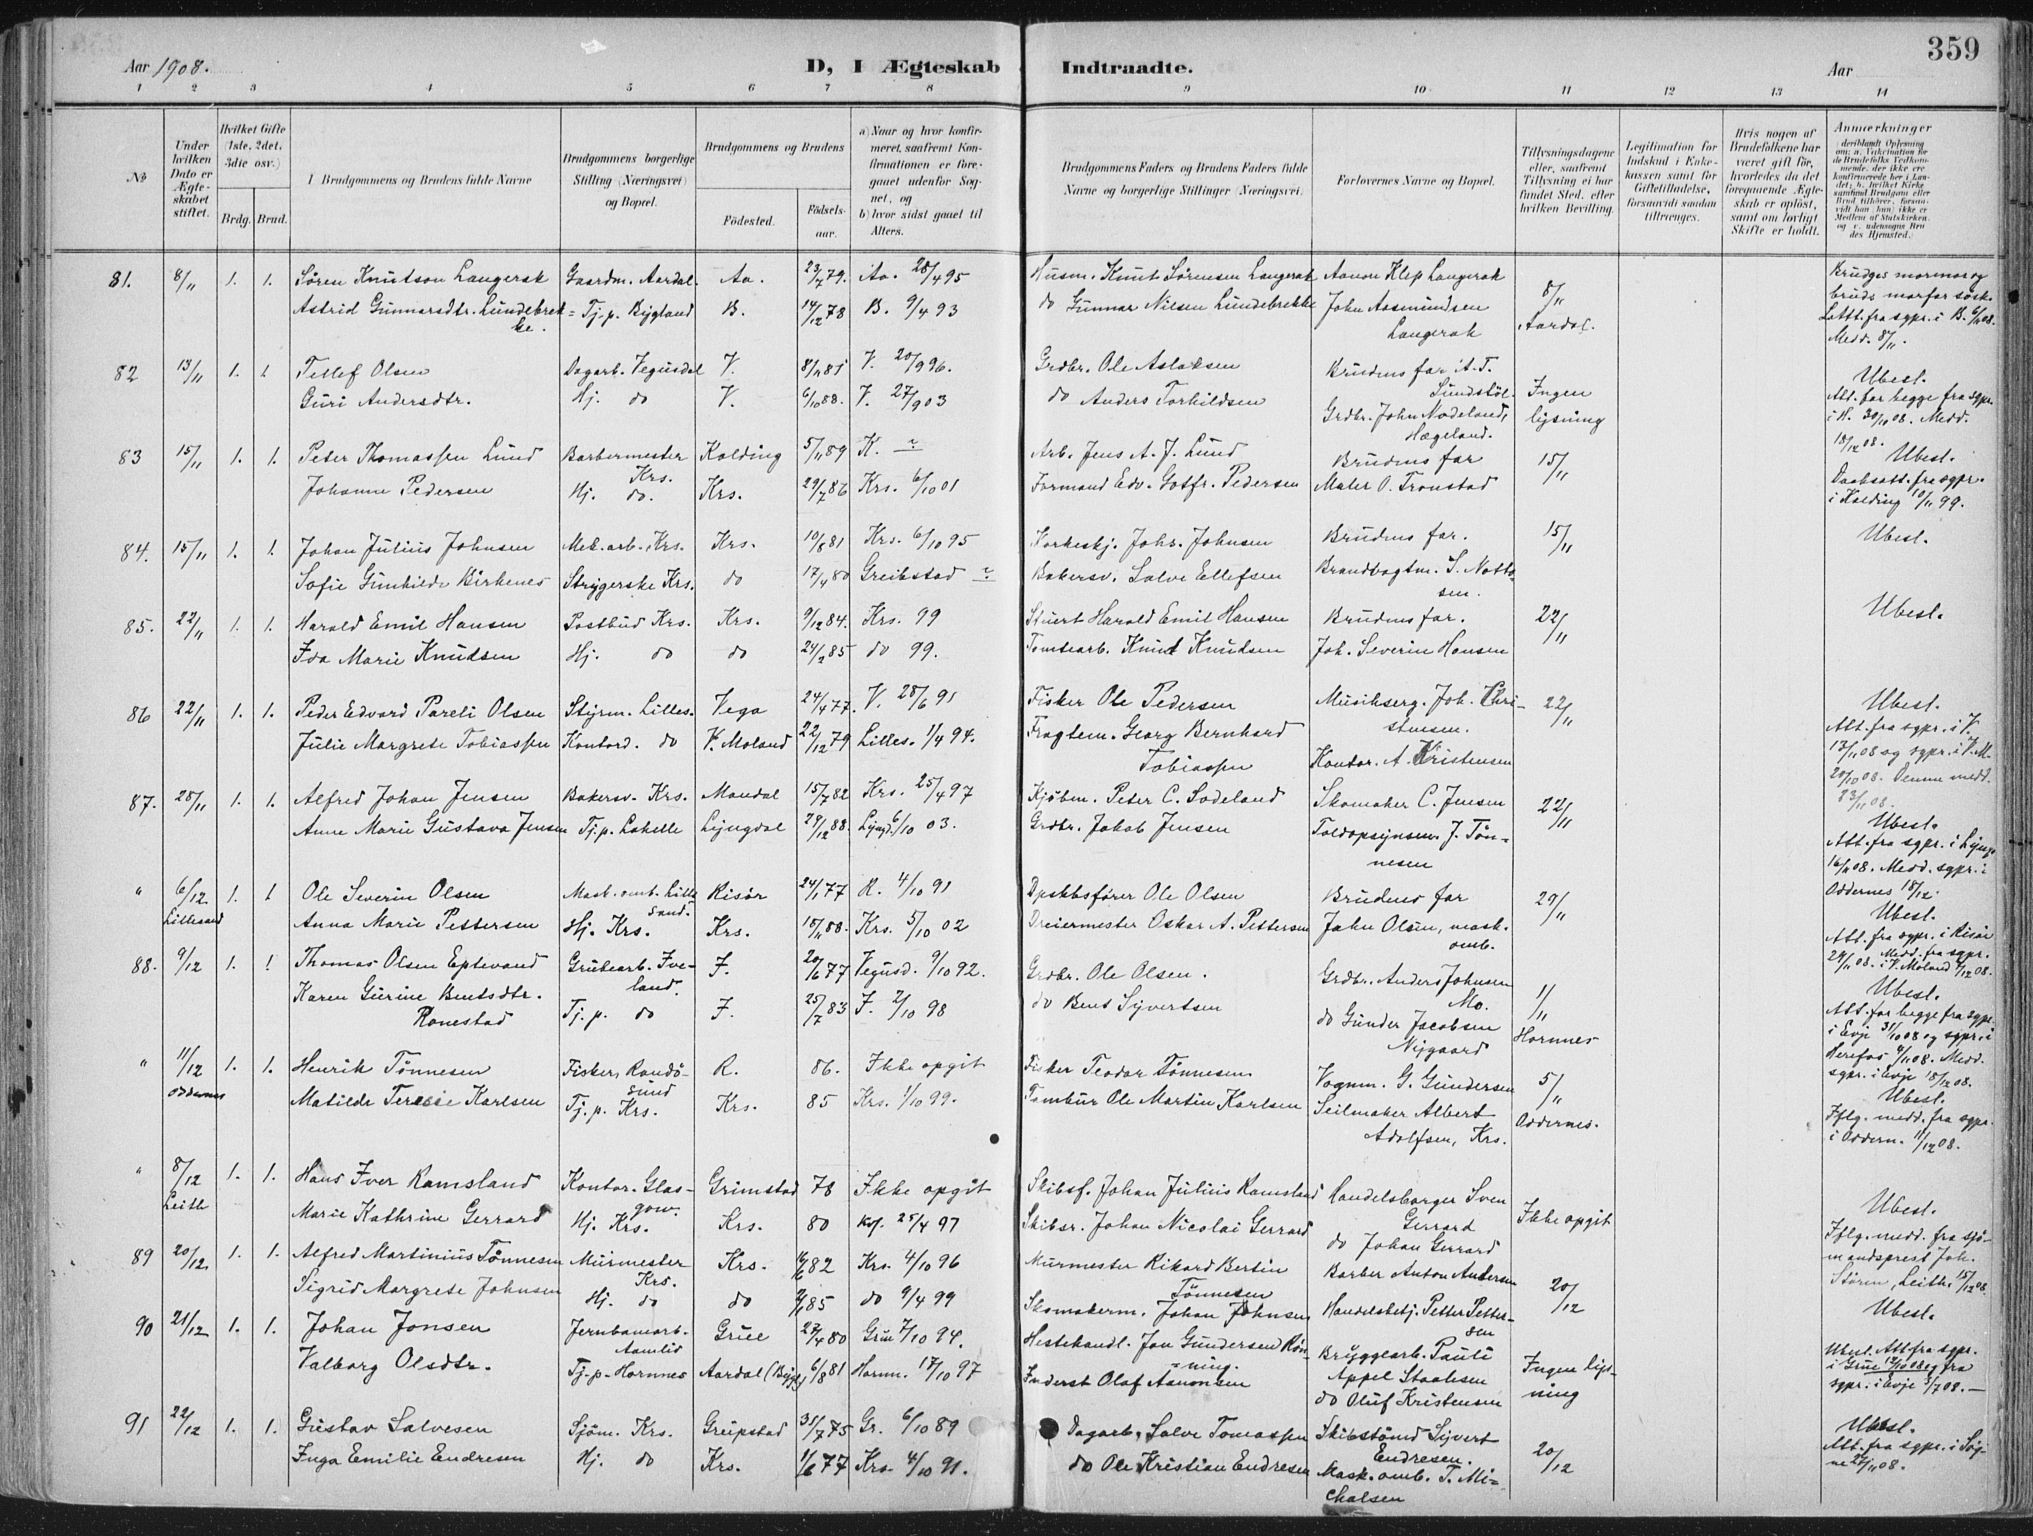 359
Aar 1908.
D, I Ægteskab Indtraadte.
Aar
1 2 3 4 5 6 7 8 9 10 11 12 13 14
No
Under hvilken Dato er Ægteskabet stiftet.
Hvilket Gifte (1ste, 2det, 3die osv.)
Brdg. Brud.
I Brudgommens og Brudens fulde Navne
Brudgommens borgerlige Stilling (Næringsvei) og Bopæl.
Brudgommens og Brudens
Födested. Födselsaar.
a) Naar og hvor konfirmeret, saafremt Konfirmationen er foregaaet udenfor Sognet, og
b) hvor sidst gaaet til Alters.
Brudgommens Faders og Brudens Faders fulde Navne og borgerlige Stillinger (Næringsvei)
Forlovernes Navne og Bopæl.
Tillysningsdagene eller, saafremt Tillysning ei har fundet Sted, efter hvilken Bevilling.
Legitimation for Indskud i Enkekassen samt for Giftetilladelse, forsaavidt saadan tiltrænges.
Hvis nogen af Brudefolkene har været gift för, hvorledes da det foregaaende Ægteskab er oplöst, samt om lovligt Skifte er holdt.
Anmærkninger
81. 8/11 1. 1. Sören Knutson Langerak Gaardm. Aardal. Aa. 23/7 79. Aa. 28/4 95 Husm. Knut Sörensen Langerak Aanon Klep Langerak 8/11 Aardal. Brudgs mormor og
Astrid Gunnarsdtr. Lundebrekke. Tj.p. Bygland B. 14/12 78 B. 9/4 93 do Gunnar Nilsen Lundebrekke John Aasmundsen Langerak bruds morfar sösk. Latt. fra sgpr. i B. 6/11 08. Medd. 8/11.
82 13/11 1. 1 Tellef Olsen Dagarb. Vegusdal V. 8/1 81 V. 20/9 96. Grdbr. Ole Aslaksen Brudens far A. T. Sundstöl. Ingen lysning Ubest.
Guri Andersdtr. Hj. do V. 6/10 88. V. 27/9 03 do Anders Torkildsen Grdbr. John Nodeland, Hægeland. Att. for begge fra sgpr. i H. 30/10 08. Medd. 18/12 08.
83 15/11 1. 1. Peter Thomassen Lund Barbermester Krs. Kolding 5/11 89 K. ? Arb. Jens A. J. Lund Brudens far 15/11 Ubest.
Johanne Pedersen Hj. do. Krs. 29/7 86 Krs. 6/10 01 Formand Edv. Gotfr. Pedersen Maler O. Tronstad Daabsatt. fra sgpr. i Kolding 10/11 99.
84. 15/11 1. 1. Johan Julius Johnsen Mek.arb. Krs. Krs. 10/8 81 Krs. 6/10 95 Korkeskj. Johs. Johnsen Brudens far. 15/11 Ubest.
Sofie Gunhilde Birkenes Strygerske Krs. do 17/4 80 Greibstad ? Bakersv. Salve Ellefsen Brandvagtm. S. Nottosen.
85. 22/11 1. 1. Harald Emil Hansen Postbud Krs. Krs. 9/12 84. Krs. 99 Stuert Harald Emil Hansen Brudens far. 22/11 Ubest.
Ida Marie Knudsen Hj. do do 24/2 85 do 99. Tomtearb. Knut Knudsen Joh. Severin Hansen
86 22/11 1. 1. Peder Edvard Pareli Olsen Styrm. Lilles. Vega 24/4 77. V. 28/6 91 Fisker Ole Pedersen Musikserg. Joh. Christensen. 22/11 Ubest.
Julie Margrete Tobiassen Kontord. do V. Moland 22/12 79 Lilles. 1/4 94. Fragtem. Georg Bernhard Tobiassen Kontor. A. Kristensen Att. fra sgpr. i V. 13/11 08 og sgpr. i V. M. 20/10 08. Denne medd. 23/11 08.
87. 28/11 1. 1. Alfred Johan Jensen Bakersv. Krs. Mandal 15/7 82 Krs. 25/4 97 Kjöbm. Peter C. Sodeland Skomaker C. Jensen 22/11 Ubest.
Anne Marie Gustava Jensen Tj.p. Lahelle Lyngdal 29/12 88. Lyngd. 6/10 03. Grdbr. Jakob Jensen Toldopsynsm. J. Tönnesen Att. fra sgpr. i Lyngd. 16/11 08. Medd. sgpr. i Oddernes 18/12.
" 6/12 Lillesand 1. 1 Ole Severin Olsen Mask.omb. Lillesand. Risör 24/1 77 R. 4/10 91 Dpskbsförer Ole Olsen Brudens far 29/11 Ubest.
Anna Marie Pettersen Hj. Krs. Krs. 15/11 88. Krs. 5/10 02 Dreiermester Oskar A. Pettersen John Olsen, mask.omb. Att. fra sgpr. i Risör 24/11 08. Medd. fra sgpr. i V. Moland 7/12 08.
88. 9/12 1. 1 Thomas Olsen Eptevand Grubearb. Iveland. I. 20/6 77 Vegusd. 9/10 92. Grdbr. Ole Olsen. Grdbr. Anders Johnsen Mo. 1/11 Hornnes Ubest.
Karen Gurine Bentsdtr. Ronestad Tj.p. do I. 25/7 83 I. 2/10 98 do Bent Syvertsen do Gunder Jacobsen Nygaard Att. for begge fra sgpr. i Evje 31/10 08 og sgpr. i Herefos 4/11 08. Medd. sgpr. i Evje 18/12 08.
" 11/12 Oddernes 1. 1. Henrik Tönnesen Fisker, Randösund R. 86. Ikke opgit Fisker Teodor Tönnesen Vognm. G. Gundersen 5/11 Oddernes. Ubest.
Matilde Teresie Karlsen Tj.p. Krs. Krs. 85 Krs. 1/10 99. Tambur Ole Martin Karlsen Seilmaker Albert Adolfsen, Krs. Iflg. medd. fra sgpr. i Oddern. 11/12 08.
" 8/12 Leith 1. 1. Hans Iver Ramsland Kontor. Glasgow. Grimstad 78 Ikke opgit Skibsf. Johan Julius Ramsland Handelsborger Sven Gerrard Ikke opgit Ubest.
Marie Kathrine Gerrard Hj. Krs. Krs. 80 Kof. 25/4 97 Skibsr. Johan Nicolai Gerrard do Johan Gerrard Iflg. medd. fra sjömandsprest Joh. Stören, Leith. 15/12 08.
89 20/12 1. 1. Alfred Martinius Tönnesen Murmester Krs. Krs. 16/6 82 Krs. 4/10 96 Murmester Rikard Bertin Tönnesen Barber Anton Andersen 20/12 Ubest.
Sigrid Margrete Johnsen Hj. do do 9/11 85 do 9/4 99 Skomakerm. Johan Johnsen Handelsbetj. Petter Pettersen
90 21/12 1. 1. Johan Jonsen Jernbanearb. Aamlid Grue 27/4 80 Grue 7/10 94. Hestehandl. Jon Gundersen Rönning. Bryggearb. Pauli Appel Staalesen Ingen lysning Ubest. Att. fra sgpr. i Grue 12/10 08 og fra sgpr. i Evje 3/7 08.
Valborg Olsdtr. Tj.p. Hornnes Aardal (Bygl.) 6/8 81 Hornn. 17/10 97 Inderst Olaf Aanonsen do Oluf Kristensen
91 22/12 1. 1. Gustav Salvesen Sjöm. Krs. Greipstad 31/7 75 Gr. 6/10 89 Dagarb. Salve Tomassen Skibstömd Syvert Endresen. 20/12 Ubest.
Inga Emilie Endresen Hj. do Krs. 11/6 77 Krs. 4/10 91. do Ole Kristian Endresen Mask.omb. T. Michalsen Att. fra sgpr. i Sögne 27/11 08.